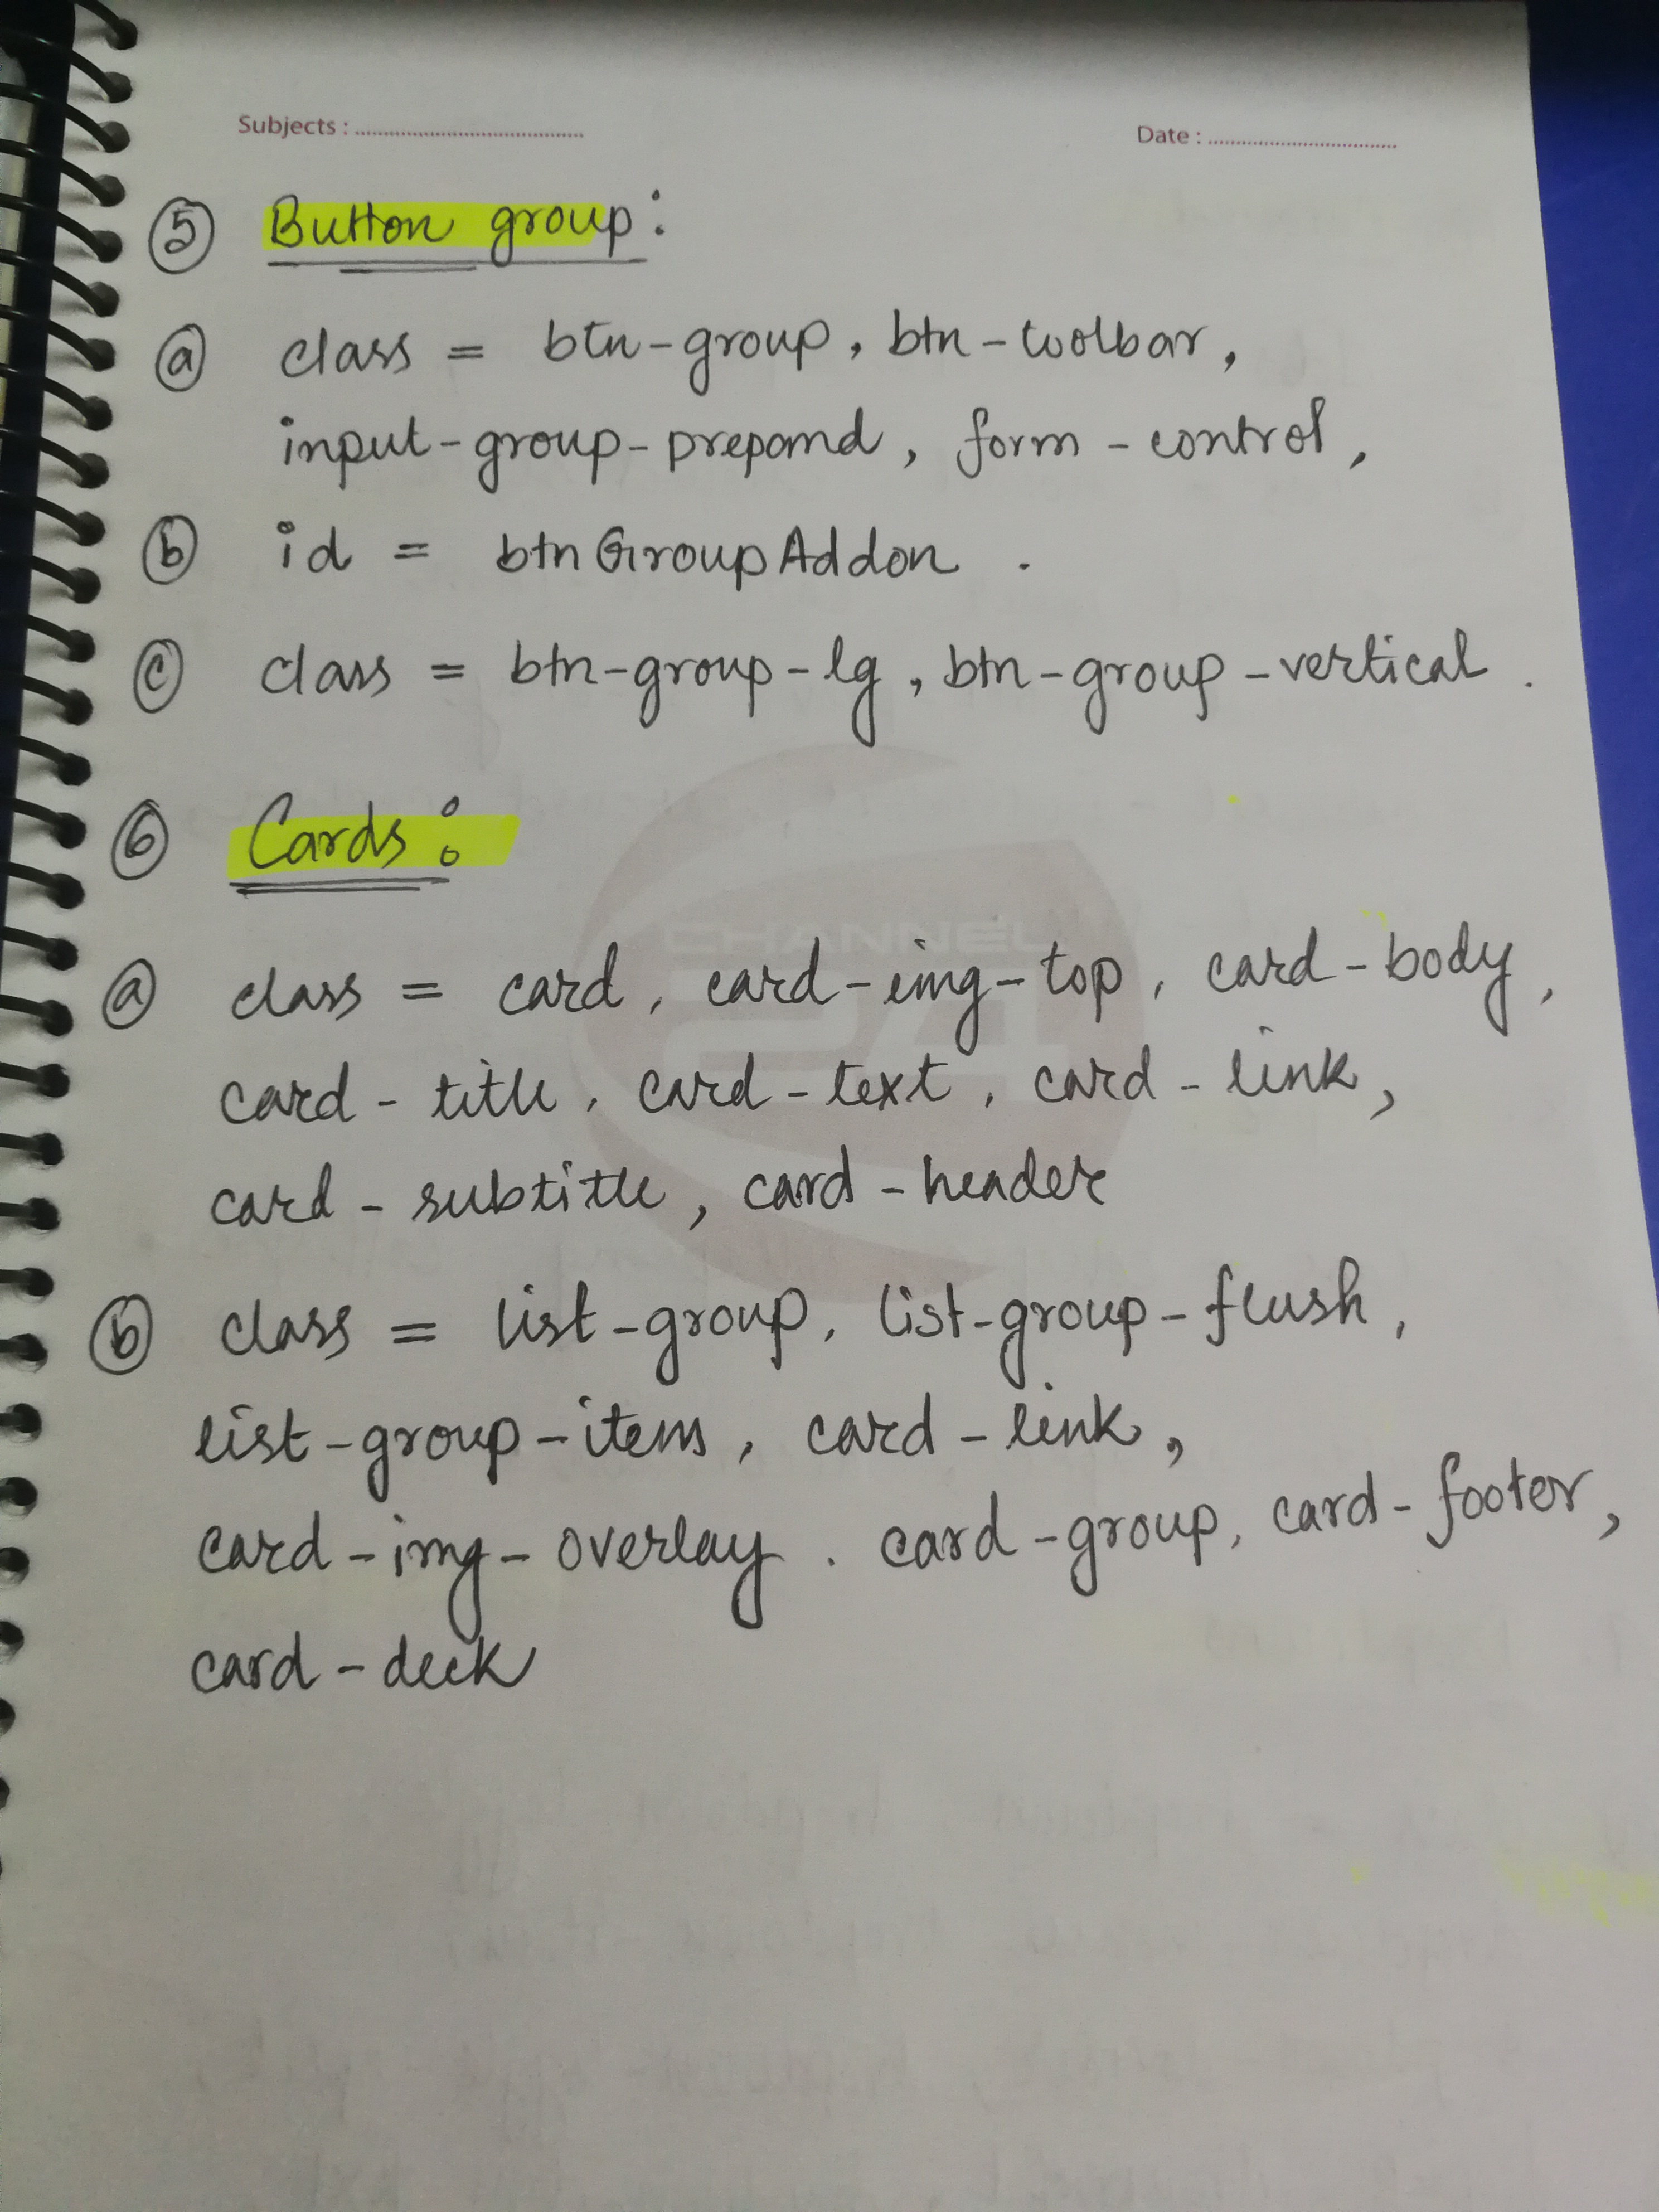 Subjects : ......................................
Date : ................................
5 Button group:
a class = btn-group, btn-toolbar,
input-group-prepand, form-control,
b id = btnGroupAddon .
c class = btn-group-lg, btn-group-vertical.
6 Cards:
CHANNEL
24
a class = card, card-img-top, card-body,
card-title, card-text, card-link,
card-subtitle, card-header
b class = list-group, list-group-flush,
list-group-item, card-link,
card-img-overlay. card-group, card-footer,
card-deck